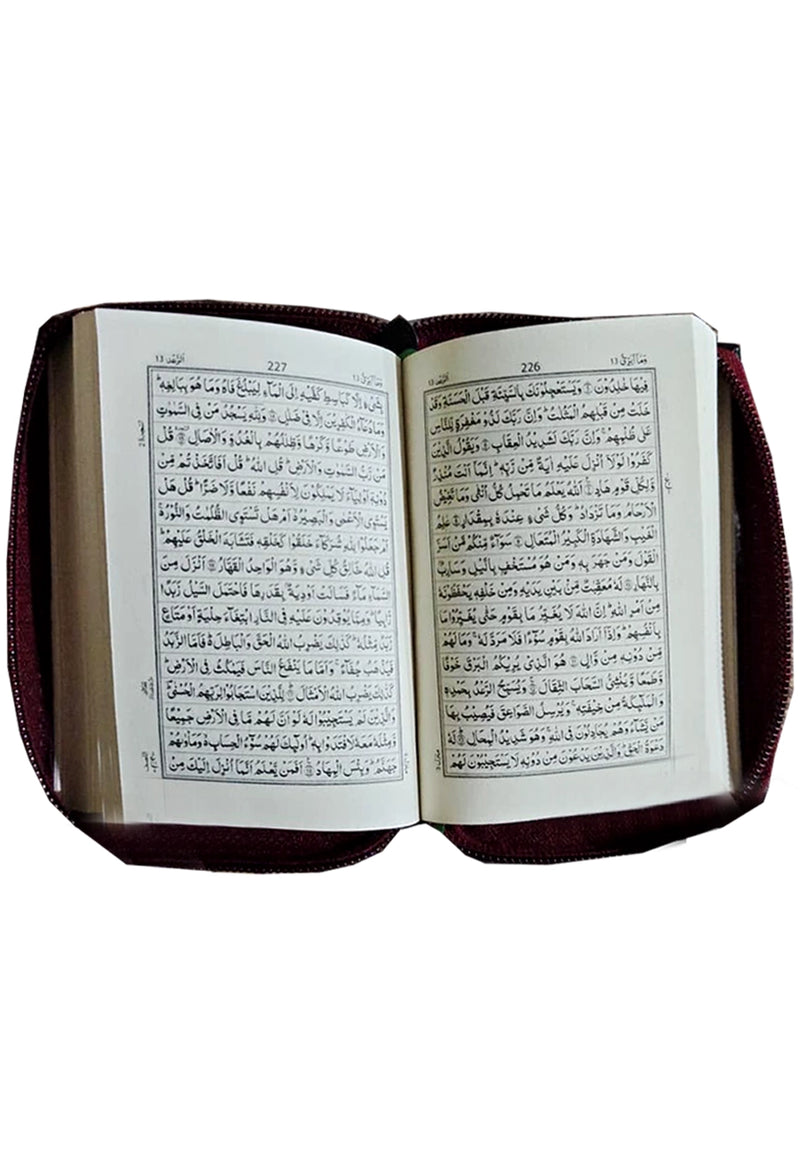 وَمَآ اُبَرِّئُ ١٣
226
اَلرَّعْد ١٣
فِيْهَا خٰلِدُوْنَ ۝ وَيَسْتَعْجِلُوْنَكَ بِالسَّيِّئَةِ قَبْلَ الْحَسَنَةِ وَقَدْ
خَلَتْ مِنْ قَبْلِهِمُ الْمَثُلٰتُ ؕ وَاِنَّ رَبَّكَ لَذُوْ مَغْفِرَةٍ لِّلنَّاسِ
عَلٰى ظُلْمِهِمْ ۚ وَاِنَّ رَبَّكَ لَشَدِيْدُ الْعِقَابِ ۝ وَيَقُوْلُ الَّذِيْنَ
كَفَرُوْا لَوْلَاۤ اُنْزِلَ عَلَيْهِ اٰيَةٌ مِّنْ رَّبِّهٖ ؕ اِنَّمَاۤ اَنْتَ مُنْذِرٌ
وَّلِكُلِّ قَوْمٍ هَادٍ ۝ اَللّٰهُ يَعْلَمُ مَا تَحْمِلُ كُلُّ اُنْثٰى وَمَا تَغِيْضُ
الْاَرْحَامُ وَمَا تَزْدَادُ ؕ وَكُلُّ شَىْءٍ عِنْدَهٗ بِمِقْدَارٍ ۝ عٰلِمُ
الْغَيْبِ وَالشَّهَادَةِ الْكَبِيْرُ الْمُتَعَالِ ۝ سَوَآءٌ مِّنْكُمْ مَّنْ اَسَرَّ
الْقَوْلَ وَمَنْ جَهَرَ بِهٖ وَمَنْ هُوَ مُسْتَخْفٍ بِالَّيْلِ وَسَارِبٌۢ
بِالنَّهَارِ ۝ لَهٗ مُعَقِّبٰتٌ مِّنْۢ بَيْنِ يَدَيْهِ وَمِنْ خَلْفِهٖ يَحْفَظُوْنَهٗ
مِنْ اَمْرِ اللّٰهِ ؕ اِنَّ اللّٰهَ لَا يُغَيِّرُ مَا بِقَوْمٍ حَتّٰى يُغَيِّرُوْا مَا
بِاَنْفُسِهِمْ ؕ وَاِذَاۤ اَرَادَ اللّٰهُ بِقَوْمٍ سُوْٓءًا فَلَا مَرَدَّ لَهٗ ۚ وَمَا لَهُمْ
مِّنْ دُوْنِهٖ مِنْ وَّالٍ ۝ هُوَ الَّذِىْ يُرِيْكُمُ الْبَرْقَ خَوْفًا
وَّطَمَعًا وَّيُنْشِئُ السَّحَابَ الثِّقَالَ ۝ وَيُسَبِّحُ الرَّعْدُ بِحَمْدِهٖ
وَالْمَلٰٓئِكَةُ مِنْ خِيْفَتِهٖ ۚ وَيُرْسِلُ الصَّوَاعِقَ فَيُصِيْبُ بِهَا
مَنْ يَّشَآءُ وَهُمْ يُجَادِلُوْنَ فِى اللّٰهِ ۚ وَهُوَ شَدِيْدُ الْمِحَالِ ۝ لَهٗ
دَعْوَةُ الْحَقِّ ؕ وَالَّذِيْنَ يَدْعُوْنَ مِنْ دُوْنِهٖ لَا يَسْتَجِيْبُوْنَ لَهُمْ
وَمَآ اُبَرِّئُ ١٣
227
اَلرَّعْد ١٣
بِشَىْءٍ اِلَّا كَبَاسِطِ كَفَّيْهِ اِلَى الْمَآءِ لِيَبْلُغَ فَاهُ وَمَا هُوَ بِبَالِغِهٖ ؕ
وَمَا دُعَآءُ الْكٰفِرِيْنَ اِلَّا فِىْ ضَلٰلٍ ۝ وَلِلّٰهِ يَسْجُدُ مَنْ فِى السَّمٰوٰتِ
وَالْاَرْضِ طَوْعًا وَّكَرْهًا وَّظِلٰلُهُمْ بِالْغُدُوِّ وَالْاٰصَالِ ۝ قُلْ
مَنْ رَّبُّ السَّمٰوٰتِ وَالْاَرْضِ ؕ قُلِ اللّٰهُ ؕ قُلْ اَفَاتَّخَذْتُمْ مِّنْ
دُوْنِهٖۤ اَوْلِيَآءَ لَا يَمْلِكُوْنَ لِاَنْفُسِهِمْ نَفْعًا وَّلَا ضَرًّا ؕ قُلْ هَلْ
يَسْتَوِى الْاَعْمٰى وَالْبَصِيْرُ ەۙ اَمْ هَلْ تَسْتَوِى الظُّلُمٰتُ وَالنُّوْرُ ۚ
اَمْ جَعَلُوْا لِلّٰهِ شُرَكَآءَ خَلَقُوْا كَخَلْقِهٖ فَتَشَابَهَ الْخَلْقُ عَلَيْهِمْ ؕ
قُلِ اللّٰهُ خَالِقُ كُلِّ شَىْءٍ وَّهُوَ الْوَاحِدُ الْقَهَّارُ ۝ اَنْزَلَ مِنَ
السَّمَآءِ مَآءً فَسَالَتْ اَوْدِيَةٌۢ بِقَدَرِهَا فَاحْتَمَلَ السَّيْلُ زَبَدًا
رَّابِيًا ؕ وَمِمَّا يُوْقِدُوْنَ عَلَيْهِ فِى النَّارِ ابْتِغَآءَ حِلْيَةٍ اَوْ مَتَاعٍ
زَبَدٌ مِّثْلُهٗ ؕ كَذٰلِكَ يَضْرِبُ اللّٰهُ الْحَقَّ وَالْبَاطِلَ ؕ فَاَمَّا الزَّبَدُ
فَيَذْهَبُ جُفَآءً ۚ وَاَمَّا مَا يَنْفَعُ النَّاسَ فَيَمْكُثُ فِى الْاَرْضِ ؕ
كَذٰلِكَ يَضْرِبُ اللّٰهُ الْاَمْثَالَ ۝ لِلَّذِيْنَ اسْتَجَابُوْا لِرَبِّهِمُ الْحُسْنٰى ؕ
وَالَّذِيْنَ لَمْ يَسْتَجِيْبُوْا لَهٗ لَوْ اَنَّ لَهُمْ مَّا فِى الْاَرْضِ جَمِيْعًا
وَّمِثْلَهٗ مَعَهٗ لَافْتَدَوْا بِهٖ ؕ اُولٰٓئِكَ لَهُمْ سُوْٓءُ الْحِسَابِ ەۙ وَمَاْوٰىهُمْ
جَهَنَّمُ ؕ وَبِئْسَ الْمِهَادُ ۝ اَفَمَنْ يَّعْلَمُ اَنَّمَاۤ اُنْزِلَ اِلَيْكَ مِنْ